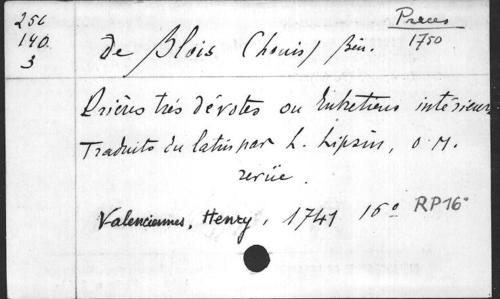 256
140
3
Preces
1750
de Blois (Louis) Bén.
Prières très dévotes ou Entretiens intérieurs
Traduits du latin par L. Lipsin, O. M.
revüe.
Valenciennes, Henry, 1741 16° RP16°